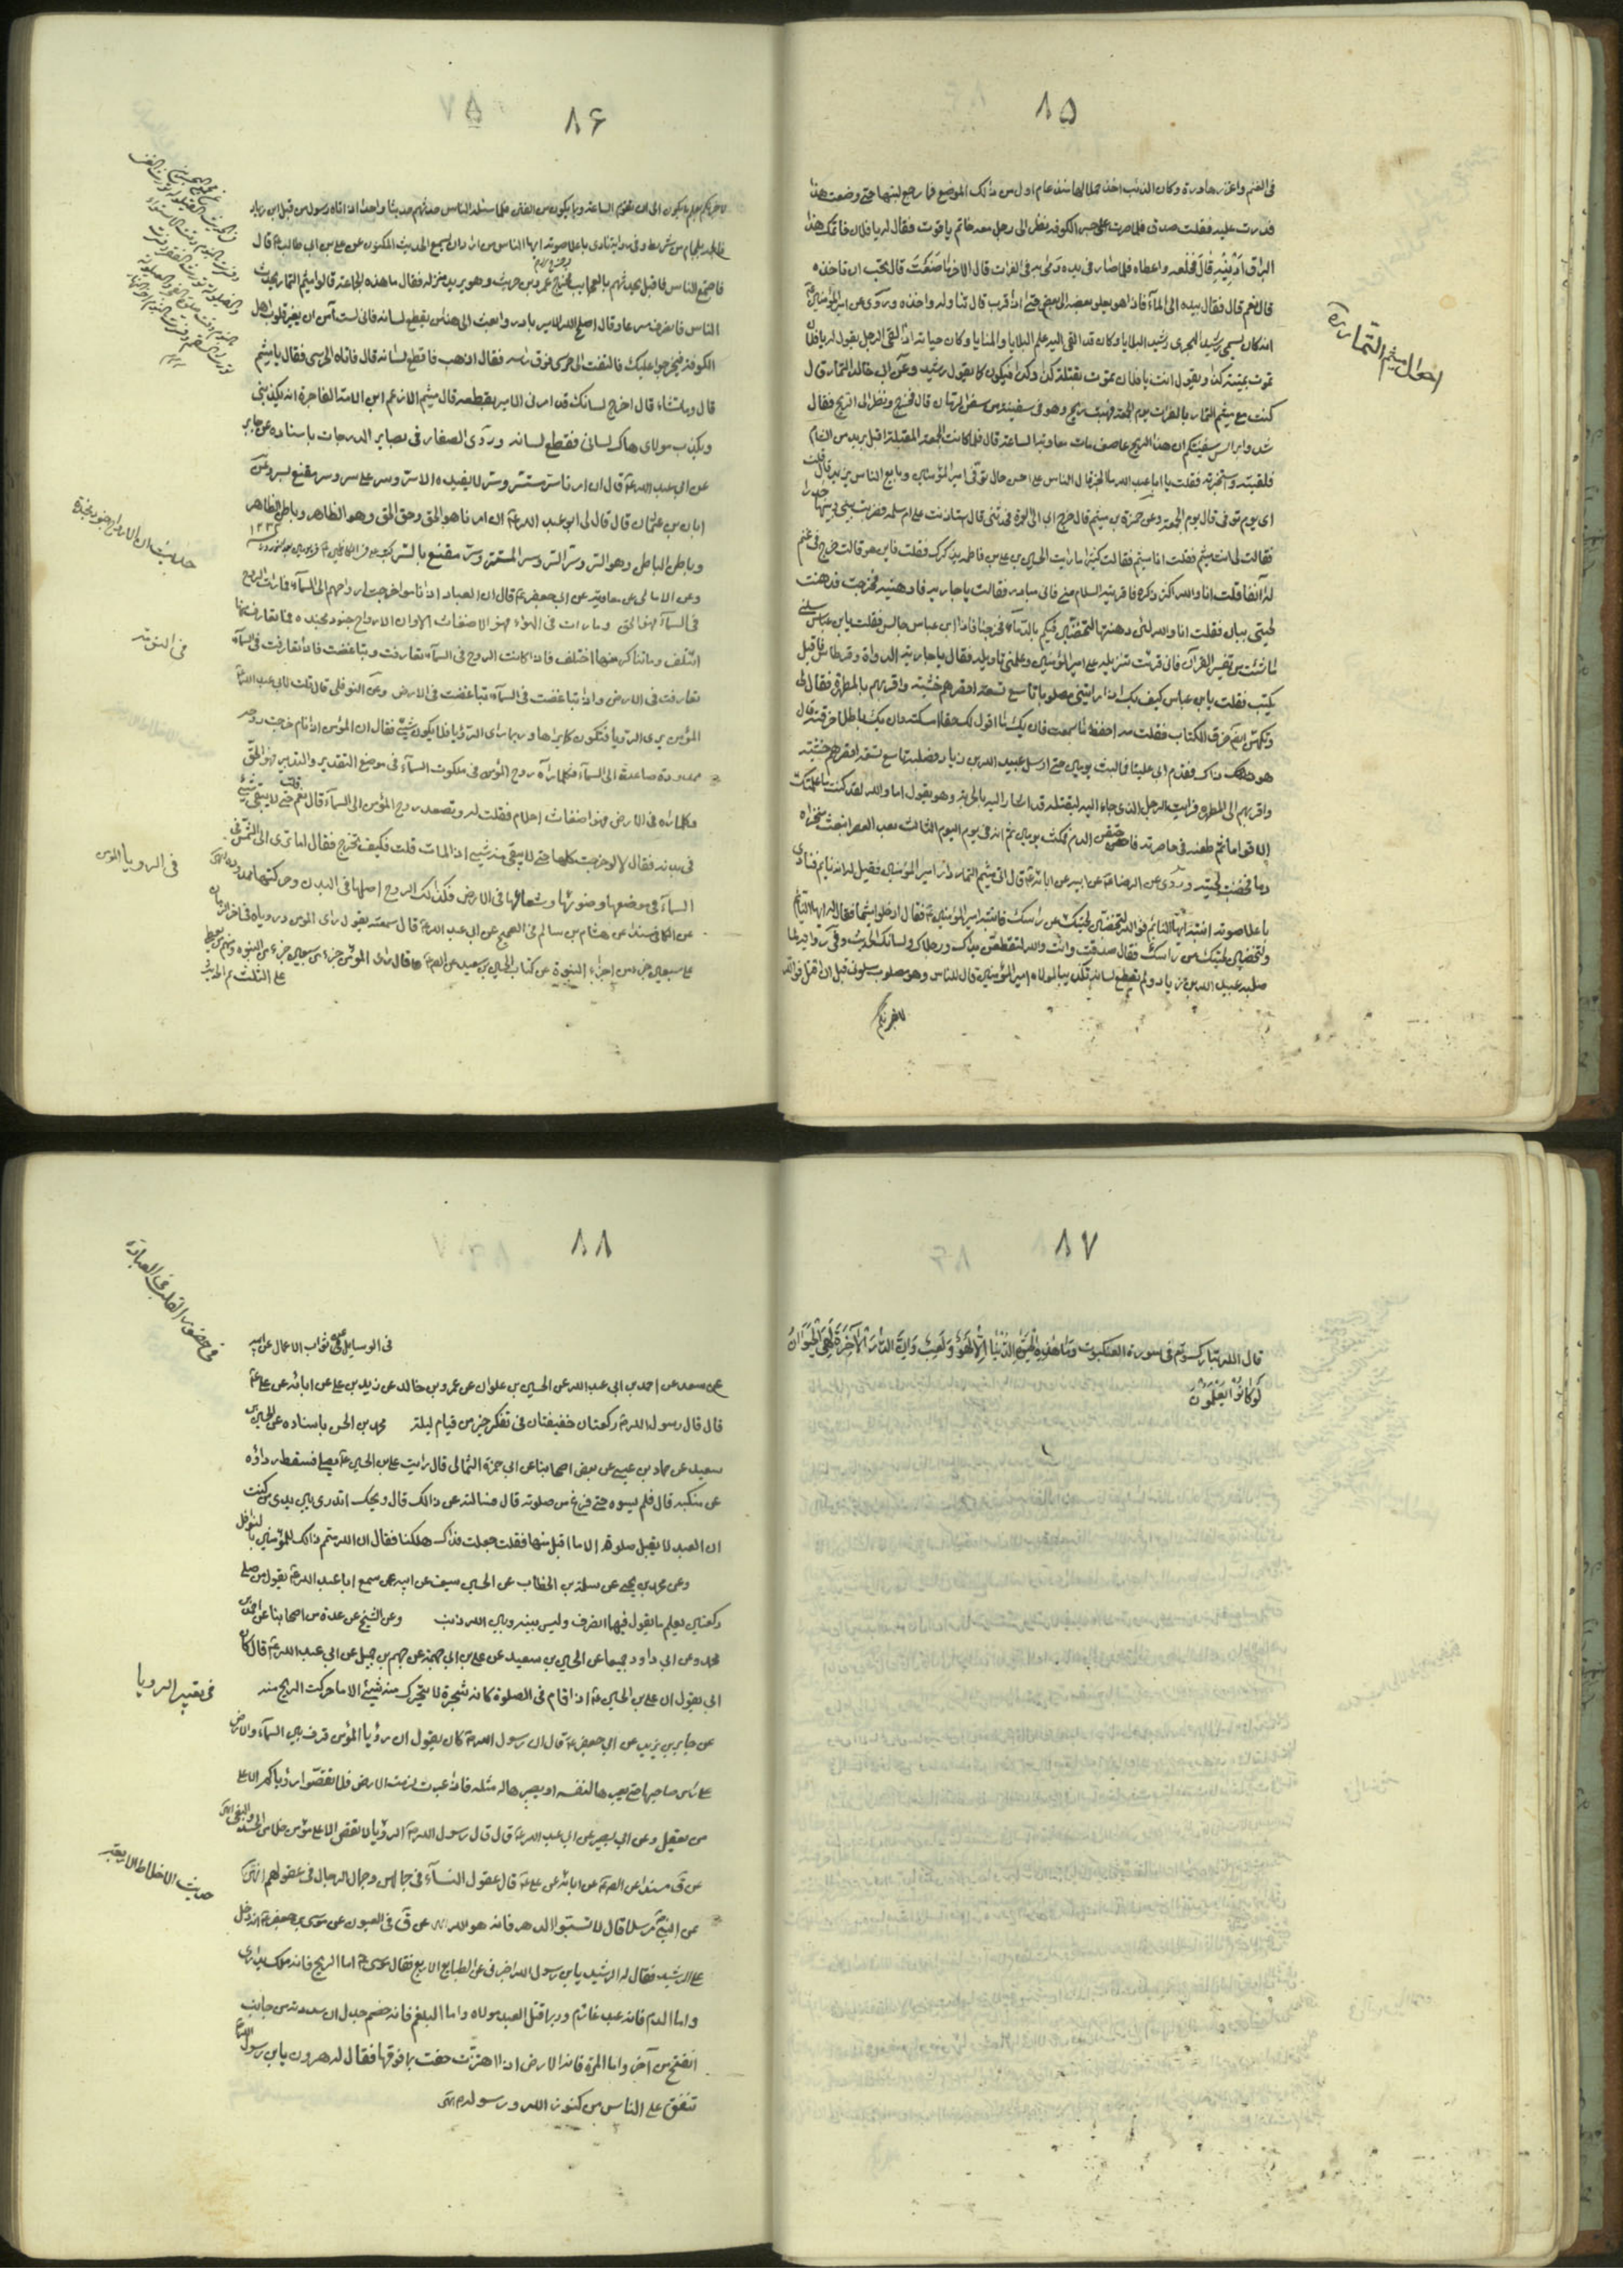 ٨٥
فى الغنم واعزز هادرة وكان الذئب اخذ حملا لها منذ عام اول من ذالك الموضع فما رجع لبنها حتى وضعت هذا
فدرت عليه فقلت صدق فلما صرت على جسر الكوفه نظر الى رجل معه خاتم ياقوت فقال له يا فلان خاتمك هذا
البراق ارنيه قال فخلعه واعطاه فلما صار فى يده رمى به فى الفرات قال الاخر ما صنعت قال تحب ان تاخذه
قال نعم قال فقال بيده الى الماء فاذا هو يعلو بعضه الى بعض حتى اذا قرب قال تناوله واخذه وروى عن امير المؤمنين
انه كان يسمى رشيد الهجرى رشيد البلايا وكان قد القى اليه علم البلايا والمنايا وكان حياته اذا لقى الرجل يقول له يا فلان
تموت بميتة كذا ويقول انت يا فلان تموت بقتلة كذا وكذا فيكون كما يقول رشيد وعن ابى خالد التمار قال
كنت مع ميثم التمار بالفرات يوم الجمعة فهبت ريح وهو فى سفينة من سفن الرمان قال فخرج ونظر الى الريح فقال
شدوا براس سفينتكم ان هذا الريح عاصف مات معاوية الساعة قال فلما كانت الجمعة المقبلة اقبل بريد من الشام
فلقيته واستخبرته فقلت يا ابا عبد الله ما الخبر قال الناس على احسن حال توفى امير المؤمنين وبايع الناس يزيد قال قلت
اى يوم توفى قال يوم الجمعة وعن حمزة بن ميثم قال خرج ابى الى العمرة فحدثنى قال استاذنت على ام سلمه فضربت بينى وبينها خدرا
فقالت لى انت ميثم فقلت انا ميثم فقالت كثيرا ما رايت الحسين بن على بن فاطمه يذكرك فقلت فاين هو قالت خرج فى غنم
له آنفا قلت انا والله اكثر ذكره فاقرئيه السلام منى فانى مبادر فقالت يا جاريه فادهنيه فخرجت فدهنت
لحيتى ببان فقلت انا والله لئن دهنتها لتخضبن فيكم بالدماء فخرجنا فاذا ابن عباس جالس فقلت يابن عباس سلنى
ما شئت من تفسير القرآن فانى قرئت تنزيله على امير المؤمنين وعلمنى تاويله فقال يا جاريه الدواة وقرطاس فاقبل
يكتب فقلت يابن عباس كيف بك اذا رايتنى مصلوبا تاسع تسعة اقصرهم خشبة واقربهم بالمطهرة فقال لى
وتكهن ايضا خرق الكتاب فقلت مه احفظ ما سمعت فان يك ما اقول لك حقا امسكته وان يك باطلا خرقته قال
هو ذلك فقدم ابى علينا فما لبث يومين حتى ارسل عبيد الله بن زياد فصلبه تاسع تسعة اقصرهم خشبة
واقربهم الى المطهرة فرايت الرجل الذى جاء اليه ليقتله قد اشار اليه بالحربة وهو يقول اما والله لقد كنت ما علمتك
الا قواما ثم طعنه فى خاصرته فاجافه فاحتقن الدم فمكث يومين ثم انه فى يوم الثالث بعد العصر انبعث منخراه
دما فخضبت لحيته وروى عن الرضا عن ابيه عن ابائه قال اتى ميثم التمار دار امير المؤمنين فقيل له انه نائم فنادى
باعلا صوته انتبه ايها النائم فوالله لتخضبن لحيتك من راسك فانتبه امير المؤمنين فقال ادخلوا ميثما فقال له ايها النائم
والله لتخضبن لحيتك من راسك فقال صدقت وانت والله لتقطعن يداك ورجلاك ولسانك الحديث وفى رواية لما
صلبه عبيد الله بن زياد ولم يقطع لسانه تكذيبا لمولاه امير المؤمنين قال للناس وهو مصلوب سلونى قبل ان اقتل فوالله
لاخبرنكم
احوال ميثم التمار ره
٨۶
لاخبرنكم بعلم ما يكون الى ان تقوم الساعة وما يكون من الفتن فلما سئله الناس حدثهم حديثا واحدا اذ اتاه رسول من قبل ابن زياد
فالجمه بلجام من شريط وفى رواية نادى باعلا صوته ايها الناس من اراد ان يسمع الحديث المكنون عن على بن ابى طالب قال
فاجتمع الناس فاقبل يحدثهم بالعجايب فخرج عمرو بن حريث وهو يريد منزله فقال ما هذه الجماعة قالوا ميثم التمار يحدث
الناس فانصرف مسرعا وقال اصلح الله الامير بادر وابعث الى هذا من يقطع لسانه فانى لست آمن ان يغير قلوب اهل
الكوفه فيخرجوا عليك فالتفت الى حرسى فوق راسه فقال اذهب فاقطع لسانه قال فاتاه الحرسى فقال يا ميثم
قال وما تشاء قال اخرج لسانك قد امرنى الامير بقطعه قال ميثم الا زعم ابن الامة الفاجرة انه يكذبنى
ويكذب مولاى هاك لسانى فقطع لسانه وروى الصفار فى بصاير الدرجات باسناده عن جابر
عن ابى عبد الله قال ان امرنا سر مستتر وسر لا يفيده الا سر وسر على سر وسر مقنع بسر وعن
ابان بن عثمان قال قال لى ابو عبد الله ان امرنا هو الحق وحق الحق وهو الظاهر وباطن الظاهر
وباطن الباطن وهو السر وسر السر وسر المستتر وسر مقنع بالسر
وعن الامالى عن معاوية عن ابى جعفر قال ان العباد اذا ناموا خرجت ارواحهم الى السماء فما رات الروح
فى السماء فهو الحق وما رات فى الهواء فهو الاضغاث الا وان الارواح جنود مجندة فما تعارف منها
ائتلف وما تناكر منها اختلف فاذا كانت الروح فى السماء تعارفت وتباغضت فاذا تعارفت فى السماء
تعارفت فى الارض واذا تباغضت فى السماء تباغضت فى الارض وعن النوفلى قال قلت لابى عبد الله
المؤمن يرى الرؤيا فتكون كما يراها وربما راى الرؤيا فلا يكون شيئا فقال ان المؤمن اذا نام خرجت روحه
ممدودة صاعدة الى السماء فكلما رآه روح المؤمن فى ملكوت السماء فى موضع التقدير والتدبير فهو الحق
وكلما راه فى الارض فهو اضغاث احلام فقلت له وتصعد روح المؤمن الى السماء قال نعم قلت حتى لا يبقى شئ
فى بدنه فقال لا لو خرجت كلها حتى لا يبقى منه شيئ اذا لمات قلت فكيف تخرج فقال اما ترى الى الشمس فى
السماء فى موضعها وضوئها وشعاعها فى الارض فكذالك الروح اصلها فى البدن وحركتها ممدودة
عن الكافى مسندا عن هشام بن سالم فى الصحيح عن ابى عبد الله قال سمعته يقول راى المؤمن ورؤياه فى اخر الزمان
على سبعين جزء من اجزاء النبوة
على الثلث ثم الحديث
حديث ان الارواح جنود مجندة
فى النوم
فى الرويا المؤمن
٨٧
قال الله تبارك وتع فى سورة العنكبوت وَمَا هٰذِهِ الْحَيٰوةُ الدُّنْيَا اِلَّا لَهْوٌ وَلَعِبٌ وَاِنَّ الدَّارَ الْاٰخِرَةَ لَهِىَ الْحَيَوَانُ
لَوْ كَانُوا يَعْلَمُونَ
٨٨
فى الوسايل عن ثواب الاعمال عن ابيه
عن سعد عن احمد بن ابى عبد الله عن الحسين بن علوان عن عمرو بن خالد عن زيد بن على عن ابائه عن على
قال قال رسول الله ركعتان خفيفتان فى تفكر خير من قيام ليلة محمد بن الحسن باسناده عن الحسين بن
سعيد عن حماد بن عيسى عن بعض اصحابنا عن ابى حمزة الثمالى قال رايت على بن الحسين يصلى فسقط رداؤه
عن منكبه قال فلم يسوه حتى فرغ من صلوته قال فسالته عن ذالك قال ويحك اتدرى بين يدى من كنت
ان العبد لا يقبل صلوة الا ما اقبل منها فقلت جعلت فداك هلكنا فقال ان الله متمم ذالك للمؤمنين بالنوافل
وعن محمد بن يحيى عن سلمة بن الخطاب عن الحسين سيف عن ابيه عمن سمع ابا عبد الله يقول من صلى
ركعتين يعلم ما يقول فيهما انصرف وليس بينه وبين الله ذنب وعن الشيخ عن عدة من اصحابنا عن احمد بن
محمد وعن ابى داود جميعا عن الحسين بن سعيد عن على بن ابى جهمة عن جهم بن حميل عن ابى عبد الله قال كان
ابى يقول ان على بن الحسين اذا قام فى الصلوة كانه شجرة لا يتحرك منه شيئ الا ما حركت الريح منه
عن جابر بن يزيد عن ابى جعفر قال ان رسول الله كان يقول ان رؤيا المؤمن ترف بين السماء والارض
على راس صاحبها حتى يعبرها لنفسه او يعبرها له مثله فاذا عبرت لزمت الارض فلا تقصوا رؤياكم الا على
من يعقل وعن ابى بصير عن ابى عبد الله قال قال رسول الله الرؤيا لا تقص الا على مؤمن خلا من الحسد والبغى
عن مسندا عن عن ابائه عن على قال عقول النساء فى جمالهن وجمال الرجال فى عقولهم
عن النبى مرسلا قال لا تسبوا الدهر فانه هو الله عن فى العيون عن موسى بن جعفر انه دخل
على الرشيد فقال له الرشيد يابن رسول الله اخبرنى عن الطبايع الاربع فقال موسى اما الريح فانه ملك يدارى
واما الدم فانه عبد غارم وربما قتل العبد مولاه واما البلغم فانه خصم جدل ان سددته من جانب
انفتح من آخر واما المرة فانها الارض اذا اهتزت رجفت بما فوقها فقال له هرون يابن رسول الله
تنفق على الناس من كنوز الله ورسوله
فى حضور القلب فى العبادة
فى تعبير الرويا